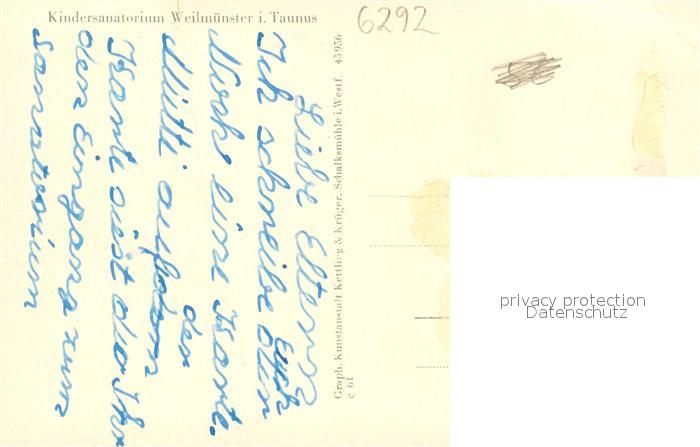 Kindersanatorium Weilmünster i. Taunus
6292
Liebe Eltern
Ich schreibe Euch
Karte.
Mutti auf
der
Karte siest du Ihr
den Eingang zum
sanatorium
Graph. Kunstanstalt Kettling & Krüger, Schalksmühle i. Westf. 45956
c 61
privacy protection
Datenschutz